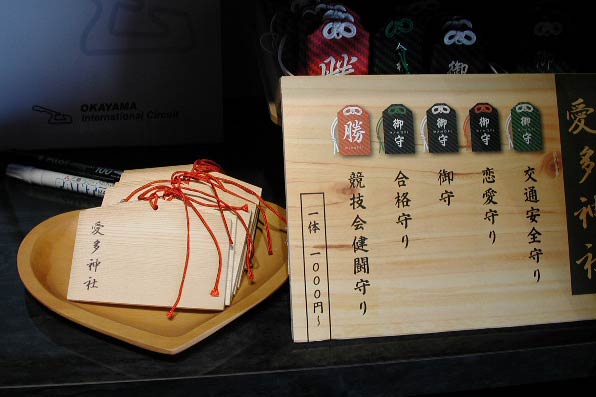 OKAYAMA
International Circuit
愛多神社
勝
御守
御守
御守
御守
競技会健闘守り
合格守り
御守
恋愛守り
交通安全守り
一体 一〇〇〇円～
愛多神社
勝
御